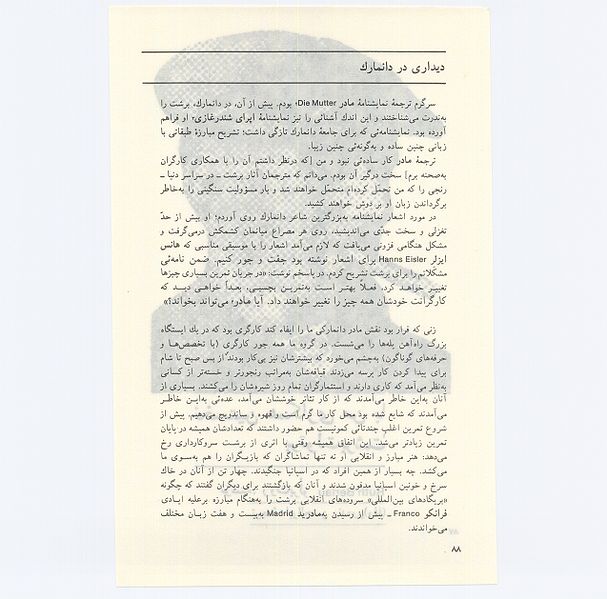 دیداری در دانمارك
سرگرم ترجمهٔ نمایشنامهٔ مادر Die Mutter، بودم. پیش از آن، در دانمارك، برشت را
به‌ندرت می‌شناختند و این اندك آشنائی را نیز نمایشنامهٔ اپرای شندرغازی، او فراهم
آورده بود. نمایشنامه‌ئی که برای جامعهٔ دانمارك تازگی داشت؛ تشریح مبارزهٔ طبقاتی با
زبانی چنین ساده و به‌گونه‌ئی چنین زیبا.
ترجمهٔ مادر کار ساده‌ئی نبود و من [که درنظر داشتم آن را با همکاری کارگران
به‌صحنه برم] سخت درگیر آن بودم. می‌دانم که مترجمان آثار برشت ــ در سراسر دنیا ــ
رنجی را که من تحمّل کرده‌ام متحمّل خواهند شد و بار مسؤولیت سنگینی را به‌خاطر
برگرداندن زبان او بر دوش خواهند کشید.
در مورد اشعار نمایشنامه به‌بزرگترین شاعر دانمارك روی آوردم؛ او بیش از حدّ
تغزلی و سخت جدّی می‌اندیشید، روی هر مصراع میانمان کشمکش درمی‌گرفت و
مشکل هنگامی فزونی می‌یافت که لازم می‌آمد اشعار را با موسیقی مناسبی که هانس
ایزلر Hanns Eisler برای اشعار نوشته بود جفت و جور کنیم. ضمن نامه‌ئی
مشکلاتم را برای برشت تشریح کردم. در پاسخم نوشت: «در جریان تمرین بسیاری چیزها
تغییر خواهد کرد. فعلاً بهتر است به‌تمرین بچسبی، بعداً خواهی دید که
کارگرانت خودشان همه چیز را تغییر خواهند داد. آیا مادر، می‌تواند بخواند؟»
زنی که قرار بود نقش مادر دانمارکی ما را ایفاء کند کارگری بود که در یك ایستگاه
بزرگ راه‌آهن پله‌ها را می‌شست. در گروه ما همه جور کارگری (با تخصص‌ها و
حرفه‌های گوناگون) به‌چشم می‌خورد که بیشترشان نیز بی‌کار بودند. از پس صبح تا شام
برای پیدا کردن کار پرسه می‌زدند قیافه‌شان به‌مراتب رنجورتر و خسته‌تر از کسانی
به‌نظر می‌آمد که کاری دارند و استثمارگران تمام روز شیره‌شان را می‌کشند. بسیاری از
آنان به‌این خاطر می‌آمدند که از کار تئاتر خوششان می‌آمد، عده‌ئی به‌این خاطر
می‌آمدند که شایع شده بود محل کار ما گرم است و قهوه و ساندویچ می‌دهیم. پیش از
شروع تمرین اغلب چندتائی کمونیست هم حضور داشتند که تعدادشان همیشه در پایان
تمرین زیادتر می‌شد. این اتفاق همیشه وقتی با اثری از برشت سروکارداری رخ
می‌دهد: هنر مبارز و انقلابی او نه تنها تماشاگران که بازیگران را هم به‌سوی ما
می‌کشد. چه بسیار از همین افراد که در اسپانیا جنگیدند. چهار تن از آنان در خاك
سرخ و خونین اسپانیا مدفون شدند و آنان که بازگشتند برای دیگران گفتند که چگونه
«بریگادهای بین‌المللی» سرودهای انقلابی برشت را به‌هنگام مبارزه برعلیه ایادی
فرانکو Franco ــ پیش از رسیدن به‌مادرید Madrid به‌بیست و هفت زبان مختلف
می‌خواندند.
۸۸